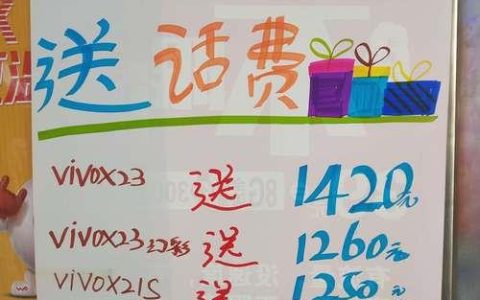 送话费
vivoX23 送 1420元
vivoX23幻彩 送 1260元
vivoX21S 送 1250元